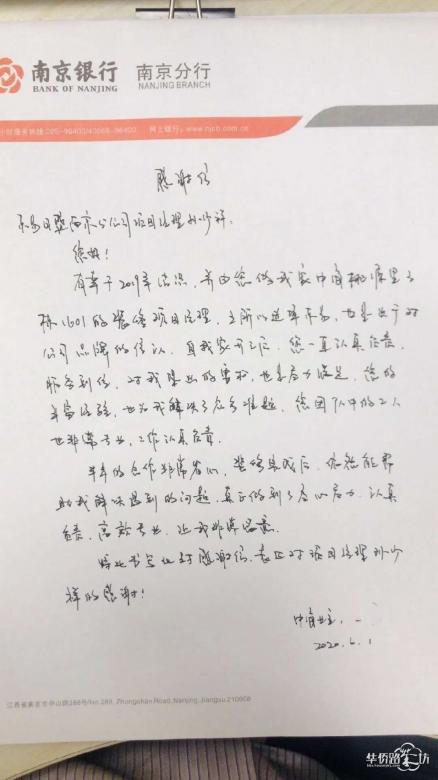 南京银行 南京分行
BANK OF NANJING NANJING BRANCH
小时服务热线:025-96400/40088-96400 网上银行:www.njcb.com.cn
感谢信
东易日盛南京分公司项目经理孙少祥:
您好!
有幸于2019年结识,并由您做我家中海桃源里3
栋1601的装修项目经理。之所以选择东易,也是出于对
公司品牌的信认。自我家开工后,您一直认真负责,
服务到位,对我提出的要求,也是尽力满足。您的
丰富经验,也为我解决了众多难题。您团队中的工人
也非常专业,工作认真负责。
半年的合作非常省心,装修完成后,依然能帮
助我解决遇到的问题,真正做到了尽心尽力、认真
负责、高效专业,让我非常满意。
特此书写此封感谢信,表达对项目经理孙少
祥的感谢!
中海业主:
2020.6.1
江苏省南京市中山路288号/No.288, Zhongshan Road, Nanjing, Jiangsu 210008
华侨路茶坊